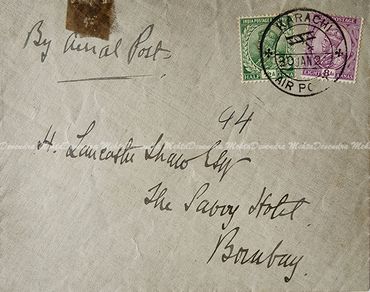 By Aerial Post.
INDIA POSTAGE
POSTAGE
KARACHI
30 JAN 2
AIR PO
EIGHT
ANNAS
94
H. Lancaster Shaw Esqr
Devendra Mehta Devendra Mehta Devendra Mehta Devendra Mehta
The Savoy Hotel
Bombay.